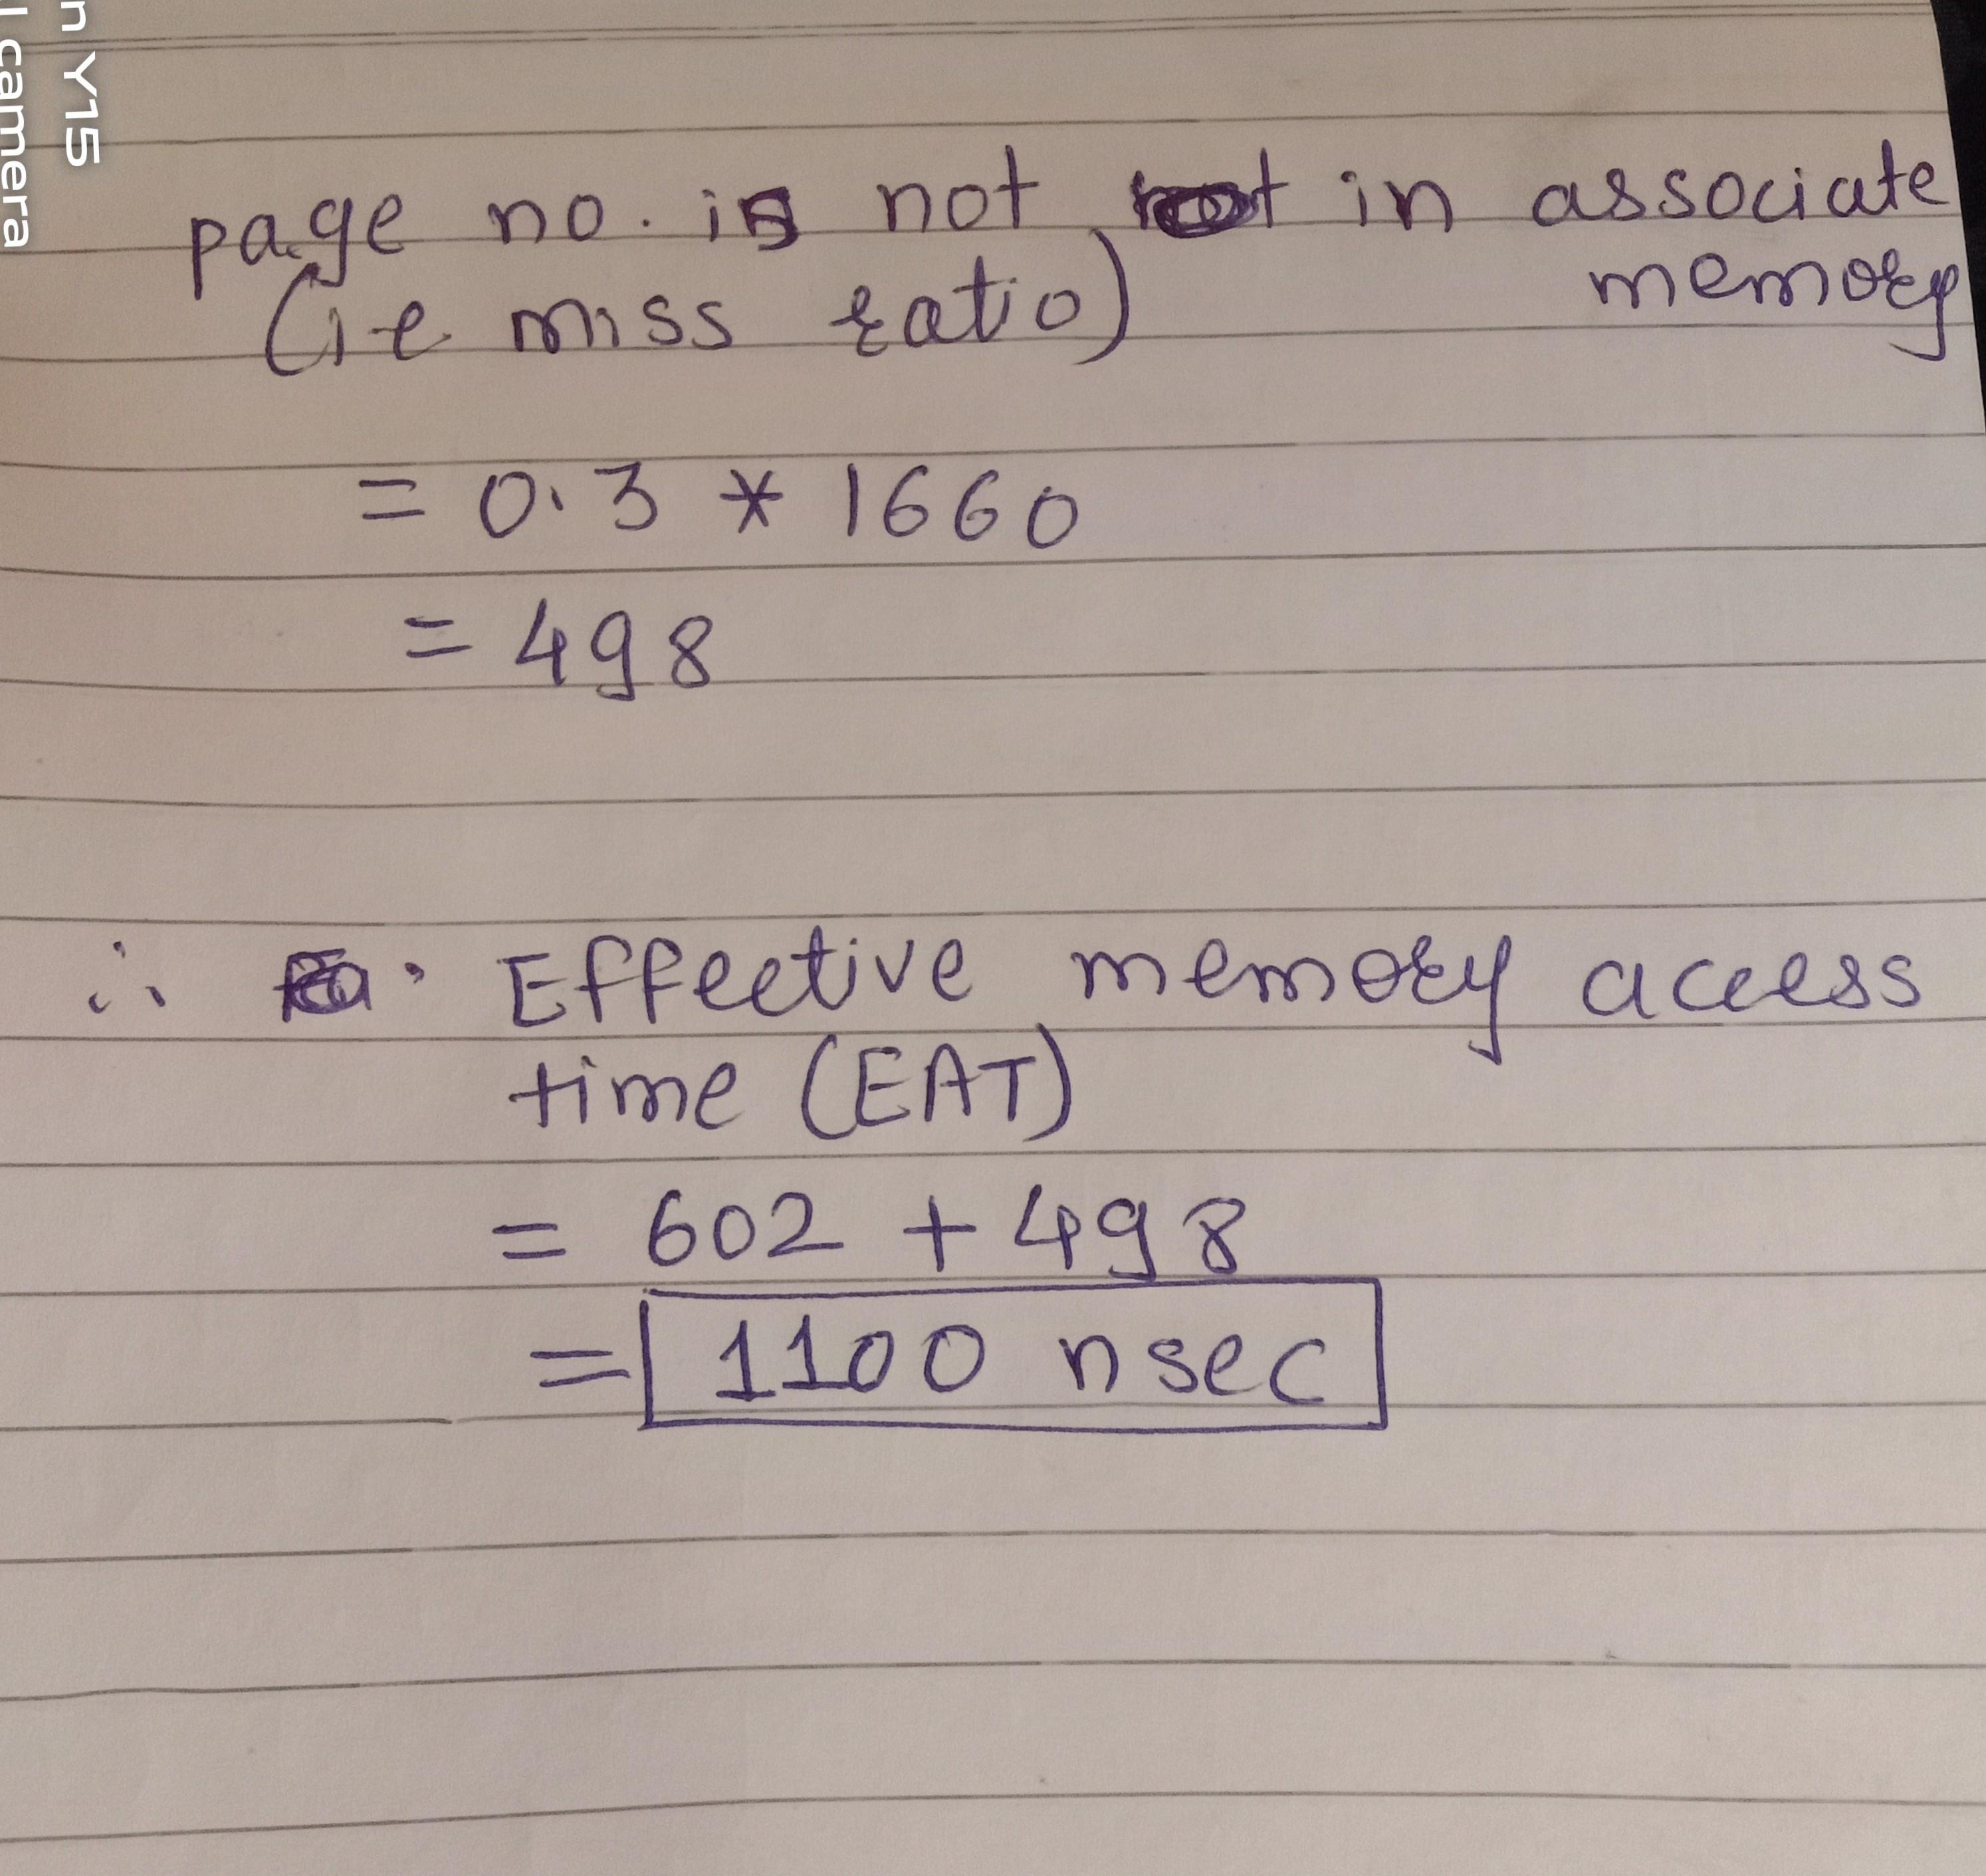 n Y15
l camera
page no. is not in associate
memory
(i.e miss ratio)
= 0.3 * 1660
= 498
∴ Effective memory access
time (EAT)
= 602 + 498
= 1100 nsec